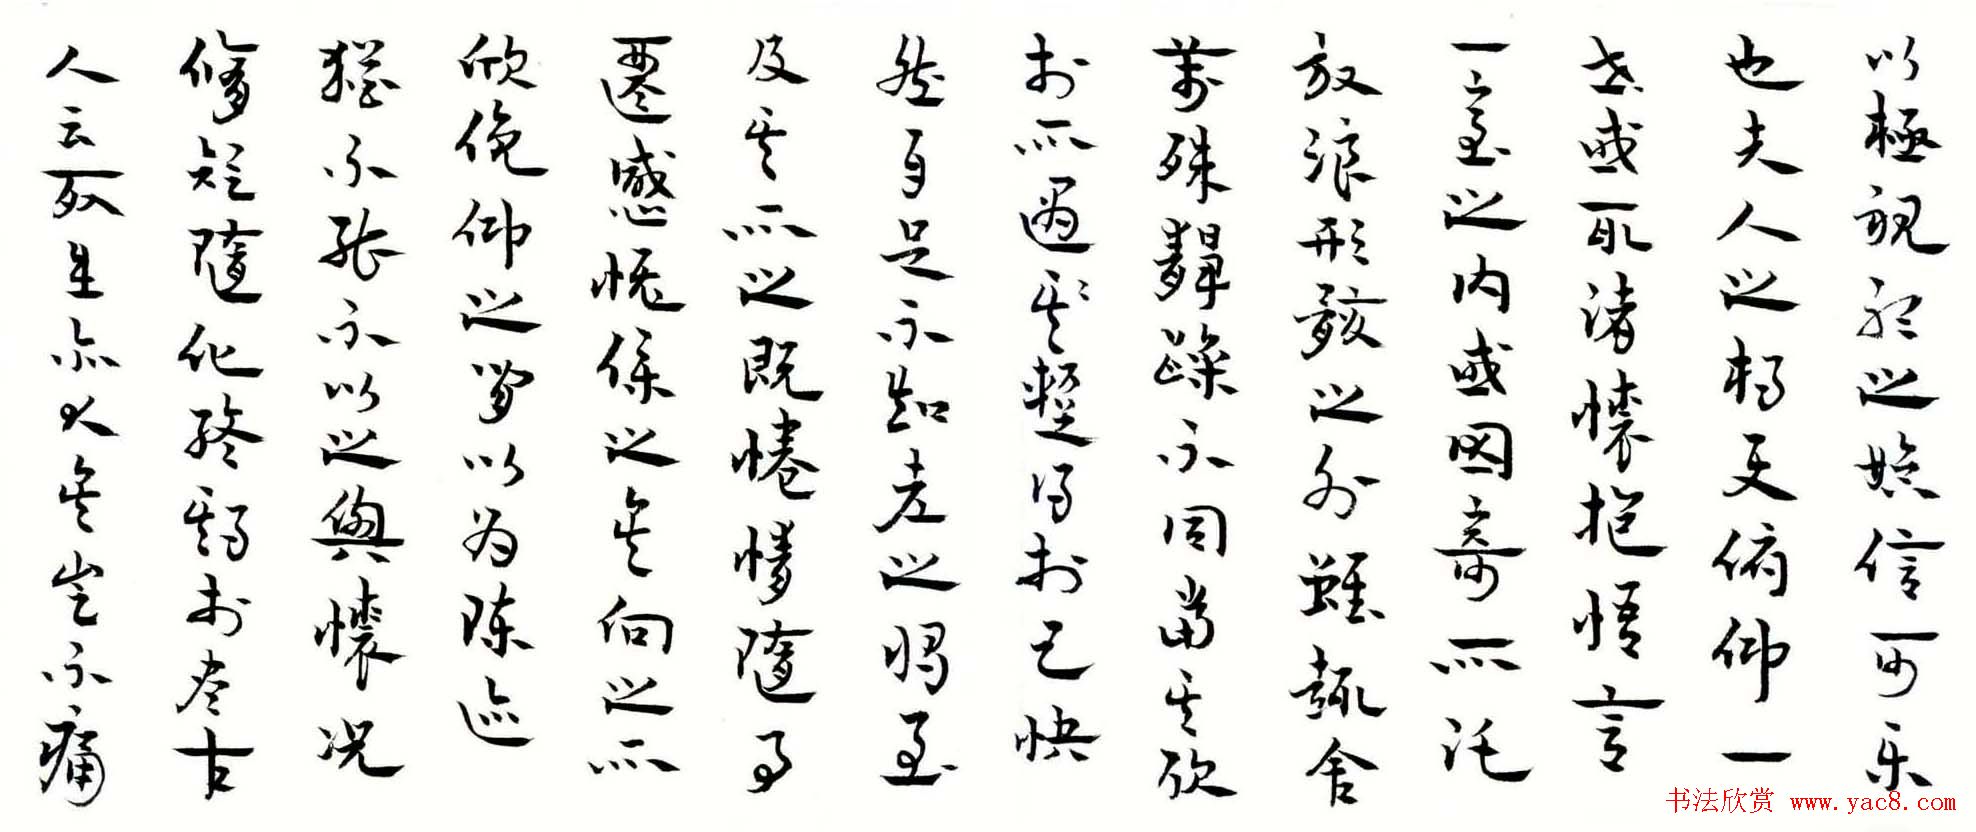 以極視聽之娱信可乐
也夫人之相与俯仰一
世或取諸懷抱悟言
一室之内或因寄所託
放浪形骸之外雖趣舍
萬殊静躁不同當其欣
於所遇其暫得於己快
然自足不知老之將至
及其所之既惓情隨事
遷感慨係之矣向之所
欣俛仰之間以為陳迹
猶不能不以之興懷况
脩短隨化終期於盡古
人云死生亦大矣豈不痛
书法欣赏 www.yac8.com